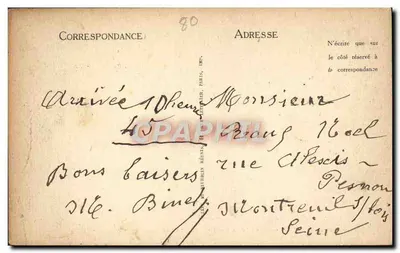 80
CORRESPONDANCE
ADRESSE
N'écrire que sur
le côté réservé à
la correspondance
Arrivée 10heur
45
Bons baisers
M. Binet
Monsieur
Noel
rue Alexis
Pesnon
Montreuil s/bois
Seine
CPARAMA